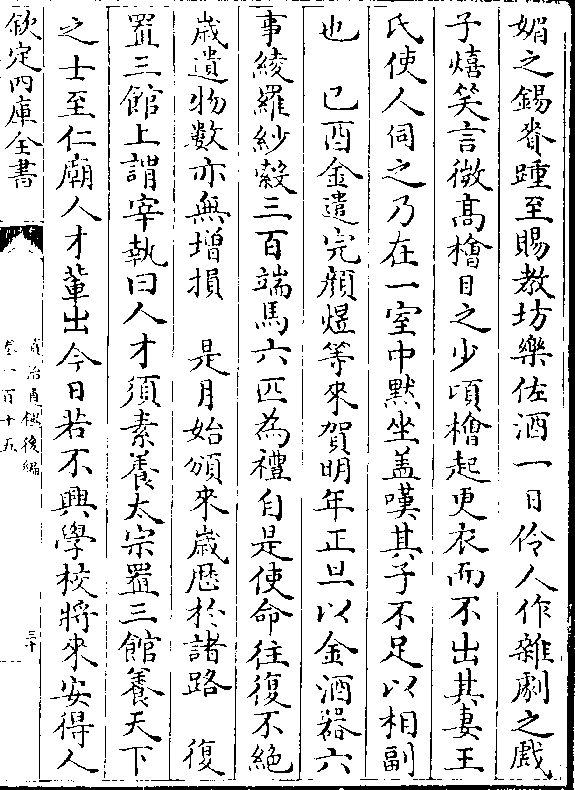 媚之錫賚踵至賜教坊樂佐酒一日伶人作雜劇之戲
子熺笑言微髙檜目之少頃檜起更衣而不出其妻王
氏使人伺之乃在一室中黙坐盖嘆其子不足以相副
也　己酉金遣完顔煜等來賀明年正旦以金酒器六
事綾羅紗縠三百端馬六匹為禮自是使命往復不絶
歳遺物數亦無增損　是月始頒來歳歴於諸路　復
置三館上謂宰執曰人才須素養太宗置三館養天下
之士至仁廟人才軰出今日若不興學校將來安得人
欽定四庫全書
資治通鑑後編
卷一百十五
三十